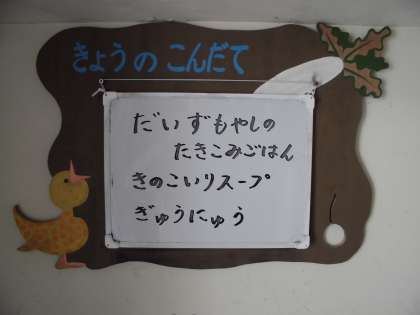 きょうのこんだて
だいずもやしの
たきこみごはん
きのこいりスープ
ぎゅうにゅう